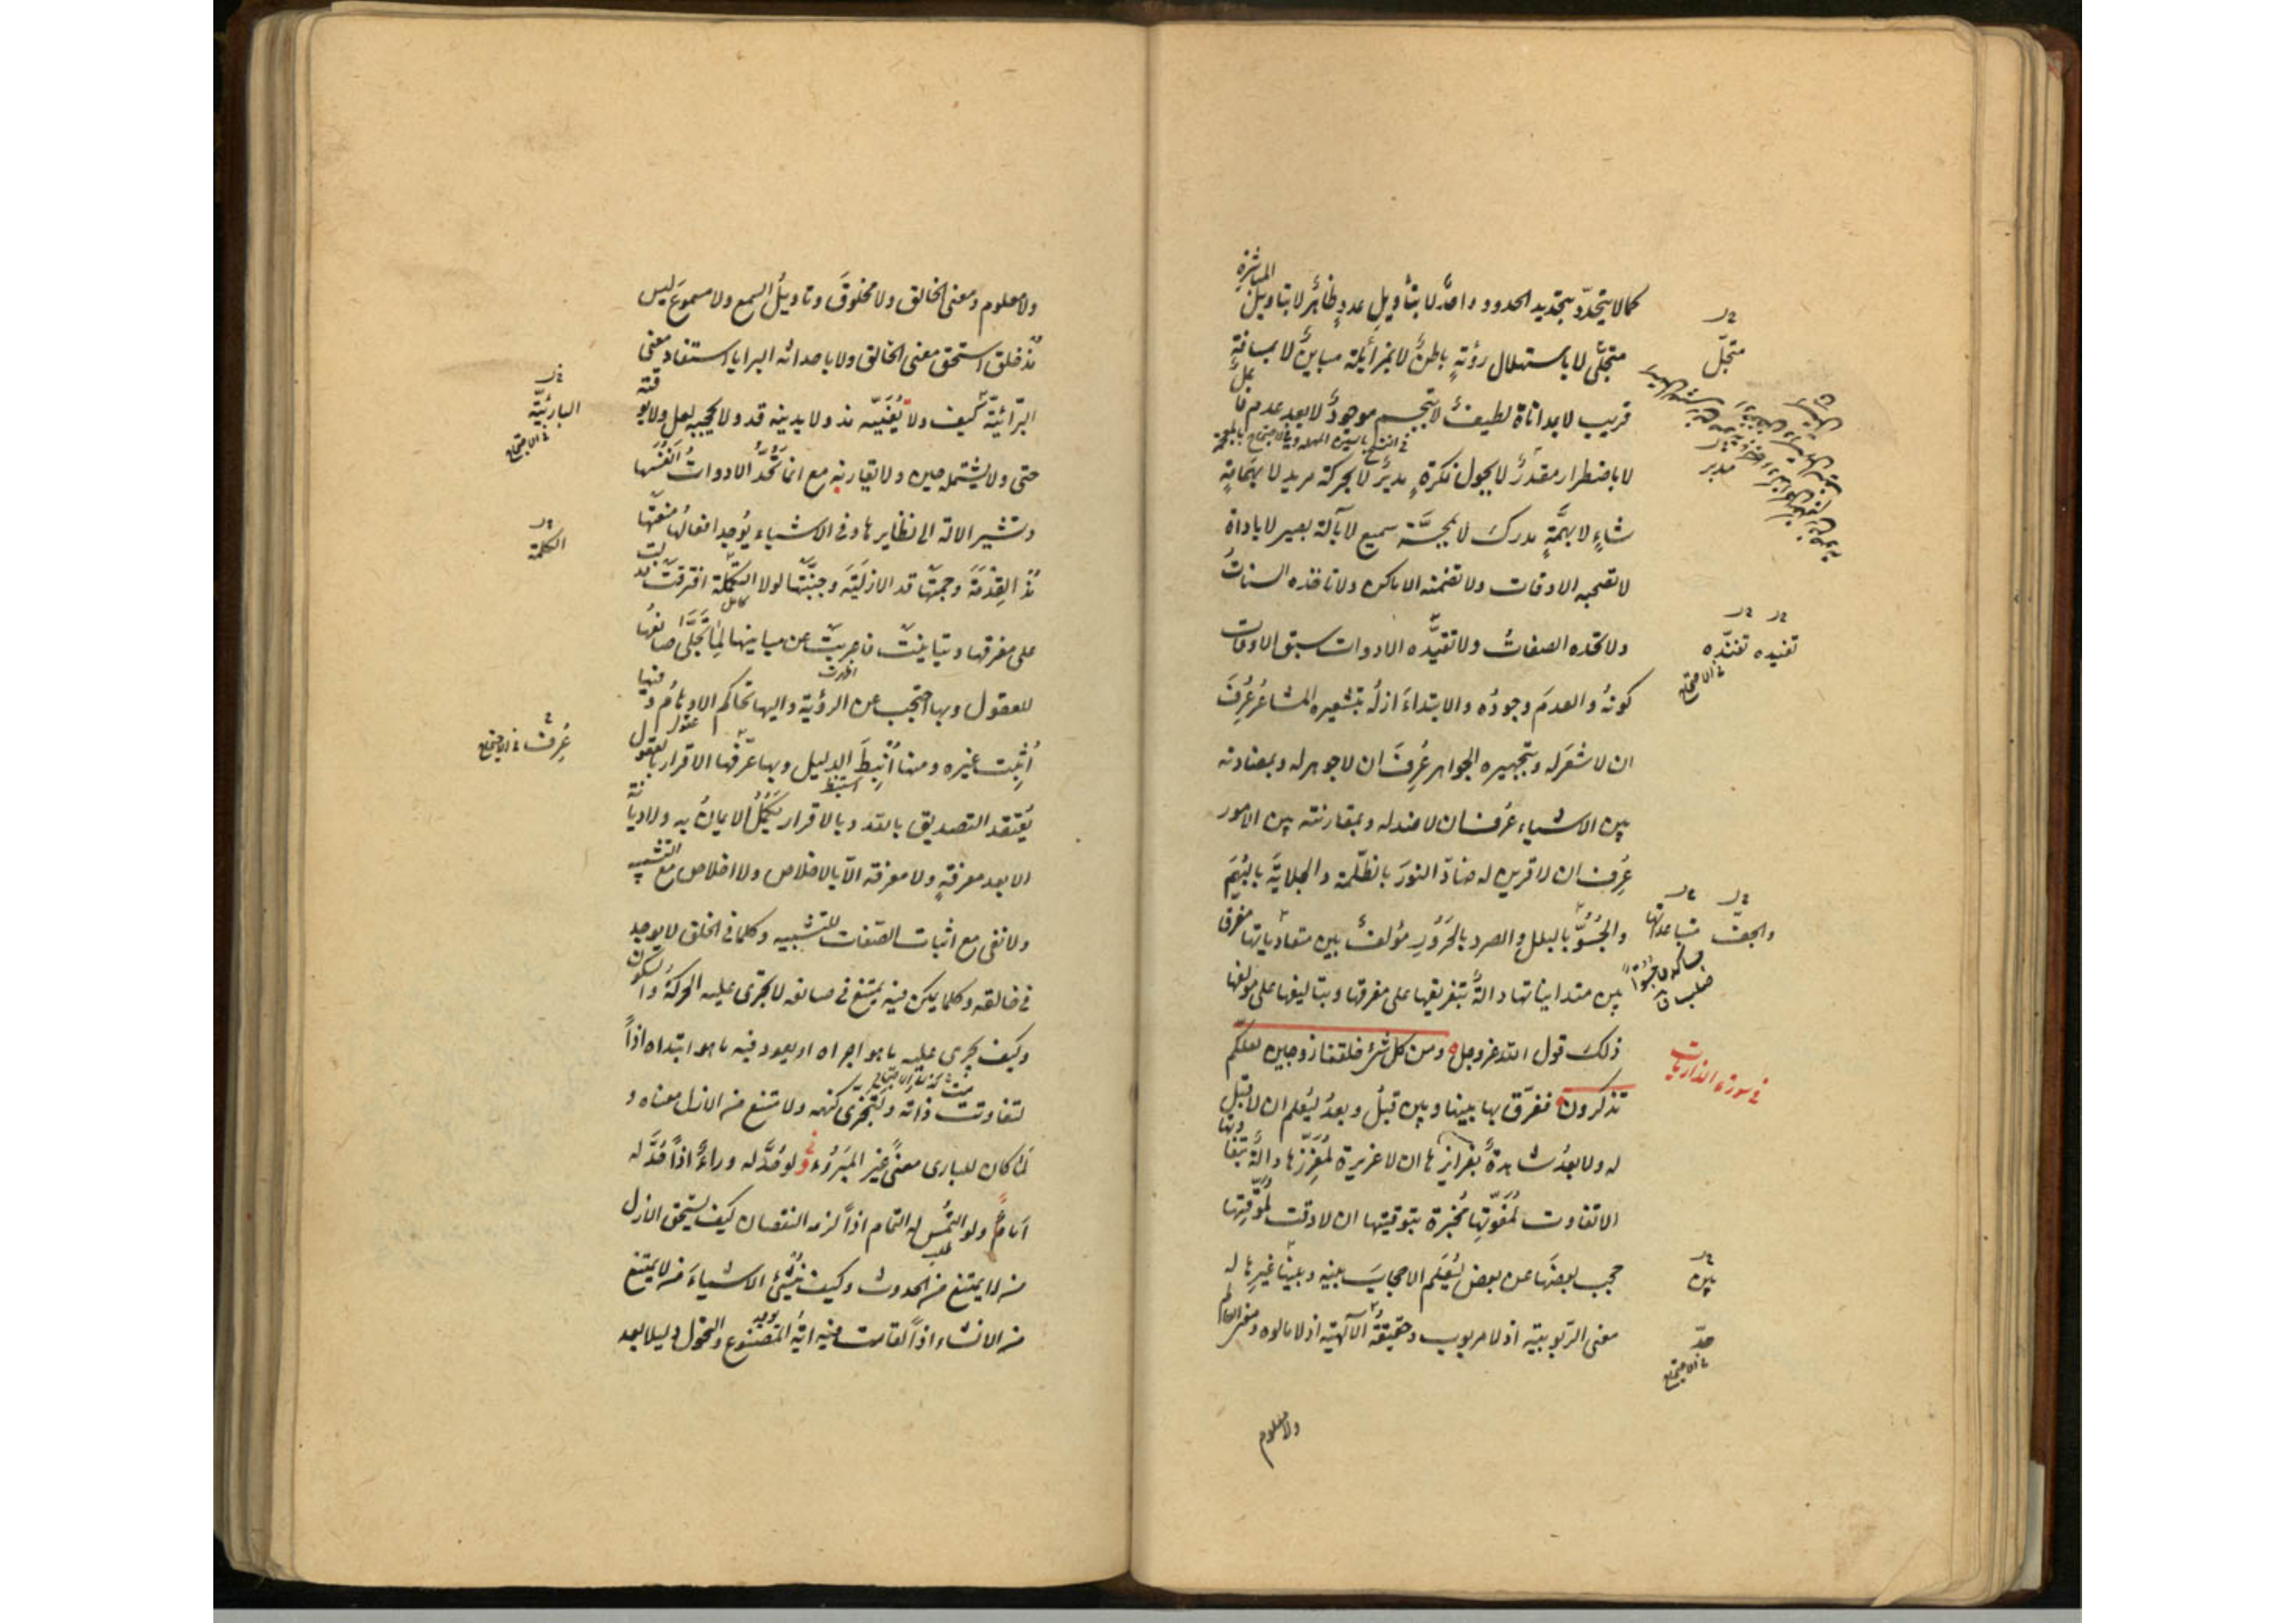 المباشرة
كما لا يتحدّد بتحديد الحدود واحدٌ لا بتأويلِ عددٍ ظاهرٌ لا بتاويل
متجلّ لا باستهلال رؤيةٍ باطنٌ لا بمزائلة مباينٌ لا بمسافةٍ
قريب لا بمداناة لطيفٌ لا بتجسم موجودٌ لا بعد عدم فاعلٌ
لا باضطرار مقدّرٌ لا بحول فكرةٍ مدبرٌ لا بحركة مريد لا بهمامةٍ
شاءٍ لا بهمّةٍ مدرك لا بمجسّة سميع لا بآلة بصير لا باداة
لا تصحبه الاوقات ولا تضمنه الاماكن ولا تاخذه السناتُ
ولا تحده الصفاتُ ولا تقيّده الادوات سبق الاوقات
كونُه والعدمَ وجودُه والابتداءَ ازلُه بتشعيره المشاعر عُرِفَ
ان لا مشعَر له وبتجهيره الجواهر عُرِفَ ان لا جوهر له وبمضادته
بين الاشياء عُرف ان لا ضد له وبمقارنته بين الامور
عُرِف ان لا قرين له ضادّ النورَ بالظلمة والجلايةَ بالبُهَم
والجُسُوّ بالبلل والصرد بالحَرُورِ مؤلفٌ بين متعادياتها مفرق
بين متدانياتها دالّةً بتفريقها على مفرقها وبتاليفها على مؤلفها
ذلك قول الله عز وجل ومن كل شئ خلقنا زوجين لعلكم
تذكرون ففرّق بها بينا وبين قبلُ وبعدُ ليُعلم ان لا قبل
له ولا بعدُ شاهدةً بغرايزها ان لا غريزة لمُغرّزها دالّةً بتفاوتها
الا تفاوت لمُفوّتها مُخبرة بتوقيتها ان لا وقت لمُوقّتها
حجب بعضَها عن بعض ليُعلم الا حجابَ بينه وبينها غيرِها له
معنى الربوبية اذ لا مربوب وحقيقةُ الآلهية اذ لا مالوه ومعنى العالم
ولا معلوم
متجلّ
مدبر
تفنيده تفنّده
في الاحتجاج
والجفّ
متباعداتها
في سورة الذاريات
بين
حدّ
في الاحتجاج
ولا معلوم ومعنى الخالق ولا مخلوقَ وتاويلُ السمع ولا مسموعَ ليس
مُذ خلق استحق معنى الخالق ولا باحداثه البرايا استفاد معنى
البرّائيّة كيف ولا يُغَيّبه مذ ولا يدنيه قد ولا يحجبه لعل ولا يوقته
حتى ولا يشتمله حين ولا يقارنه مع انما تحُدُّ الادواتُ انفُسَها
وتشير الالة الى نظايرها وفي الاشياء يُوجد افعالُها منعتها
مُذ القِدمَةَ وحمتها قد الازليّةَ وجنّبتها لولا التكملة افترقت
على مفرقها وتباينت فاعربت عن مباينها لِما تجلّى صانعُها
للعقول وبها احتجب عن الرؤية واليها تحاكم الاوهامُ وفيها
أُثبِت غيره ومنها أُنبِطَ الدليل وبها عرّفها الاقرار بالعقول
يُعتقد التصديق بالله وبالاقرار يَكمُلُ الايمانُ به ولا ديانة
الا بعد معرفةٍ ولا معرفة الّا بالاخلاص ولا اخلاص مع التشبيه
ولا نفى مع اثبات الصّفات للتشبيه وكلما في الخلق لا يوجد
في خالقه وكلما يمكن فيه يمتنع في صانعه لا تجرى عليه الحركةُ والسكون
وكيف يجرى عليه ما هو اجراه او يعود فيه ما هو ابتداه اذاً
لتفاوتت ذاته ولتجزى كنهه ولامتنع من الازل معناه و
لَما كان للبارى معنىً غير المبروء ولو حُدَّ له وراءٌ اذاً حُدَّ له
اَمامٌ ولو التُمس له التمام اذاً لزمه النقصان كيف يستحق الازل
من لا يمتنع من الحدوث وكيف يُنشئُ الاشياءَ من لا يمتنع
من الانشاء اذاً لقامت فيه ايةُ المصنوع ولتحول دليلا بعد
البارئيّة
في الاحتجاج
الكلمة
عُرِف في الاحتجاج